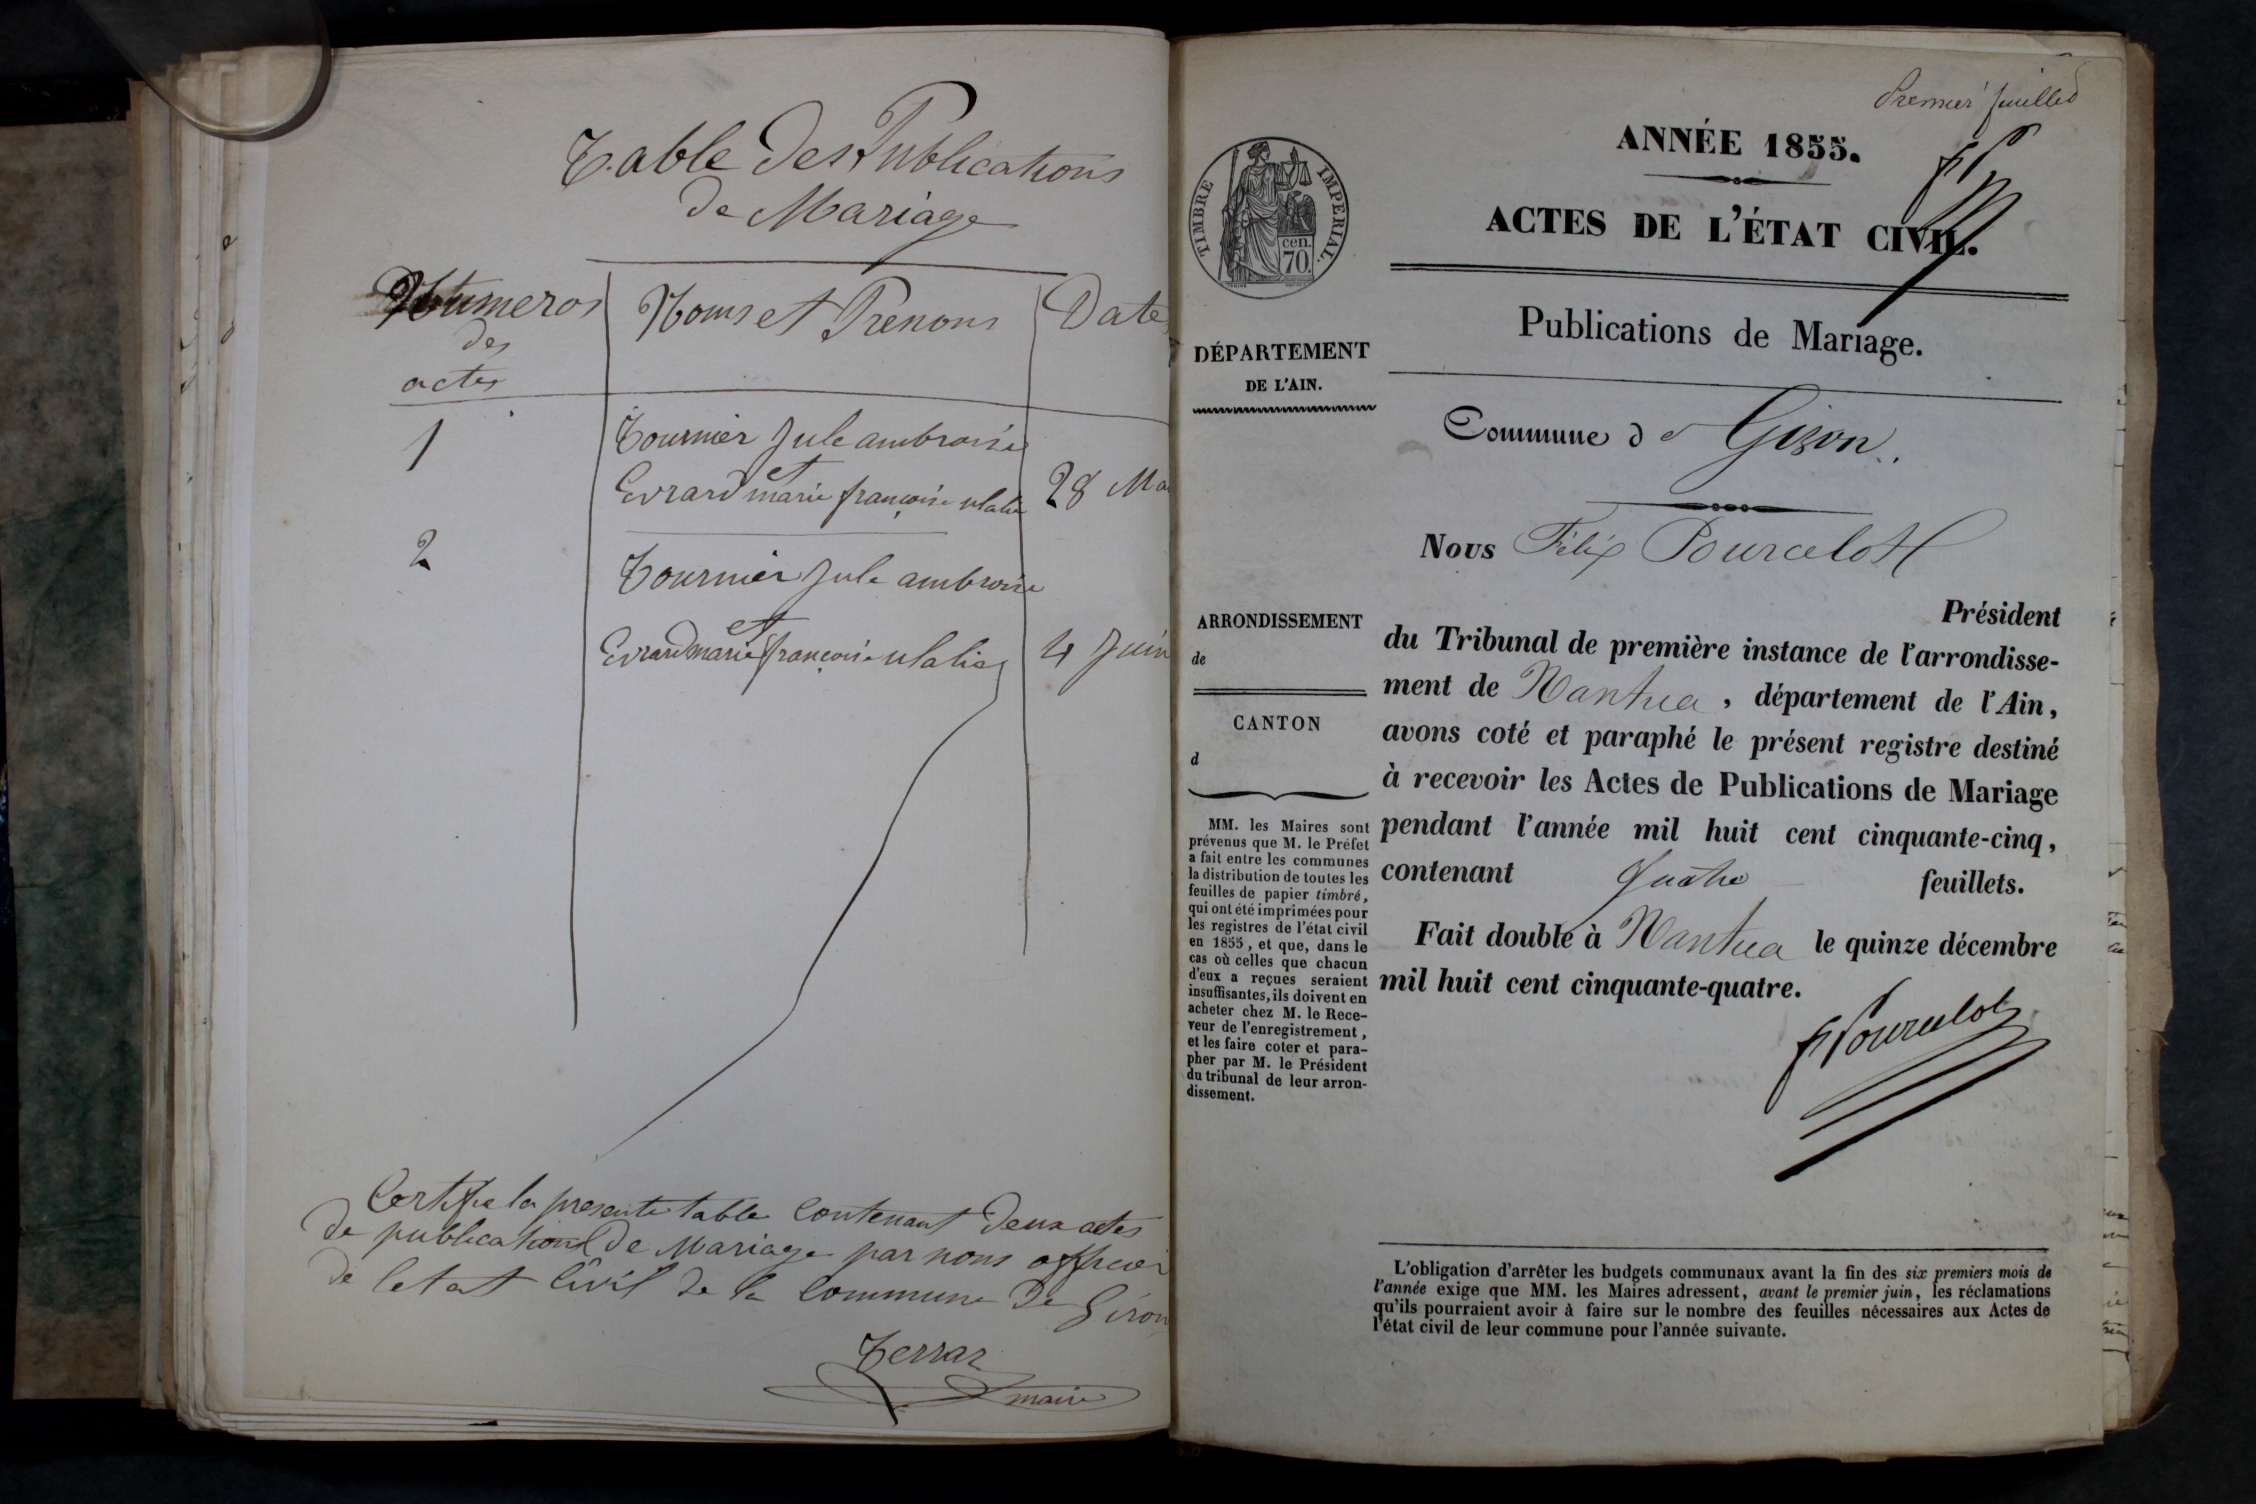 Table des Publications
de Mariage
Numeros
des
actes
Noms et Prenoms
Date
1
Tournier Jule ambroise
et
Evrard marie françoise ulalie
28 Ma
2
Tournier Jule ambroise
et
Evrard marie françoise ulalie
4 Juin
Certifie la presente table contenant deux actes
de publication de Mariage par nous officier
de letat Civil de la commune de Giron
Terraz
maire
Premier feuillet
ANNÉE 1855.
ACTES DE L'ÉTAT CIVIL.
TIMBRE IMPÉRIAL.
cen.
70.
Publications de Mariage.
DÉPARTEMENT
DE L'AIN.
Commune de Giron.
Nous Félix Pourcelot
Président
ARRONDISSEMENT
de
CANTON
d
du Tribunal de première instance de l'arrondisse-
ment de Nantua, département de l'Ain,
avons coté et paraphé le présent registre destiné
à recevoir les Actes de Publications de Mariage
pendant l'année mil huit cent cinquante-cinq,
contenant quatre feuillets.
Fait double à Nantua le quinze décembre
mil huit cent cinquante-quatre.
FPourcelot
MM. les Maires sont
prévenus que M. le Préfet
a fait entre les communes
la distribution de toutes les
feuilles de papier timbré,
qui ont été imprimées pour
les registres de l'état civil
en 1855, et que, dans le
cas où celles que chacun
d'eux a reçues seraient
insuffisantes, ils doivent en
acheter chez M. le Rece-
veur de l'enregistrement,
et les faire coter et para-
pher par M. le Président
du tribunal de leur arron-
dissement.
L'obligation d'arrêter les budgets communaux avant la fin des six premiers mois de
l'année exige que MM. les Maires adressent, avant le premier juin, les réclamations
qu'ils pourraient avoir à faire sur le nombre des feuilles nécessaires aux Actes de
l'état civil de leur commune pour l'année suivante.